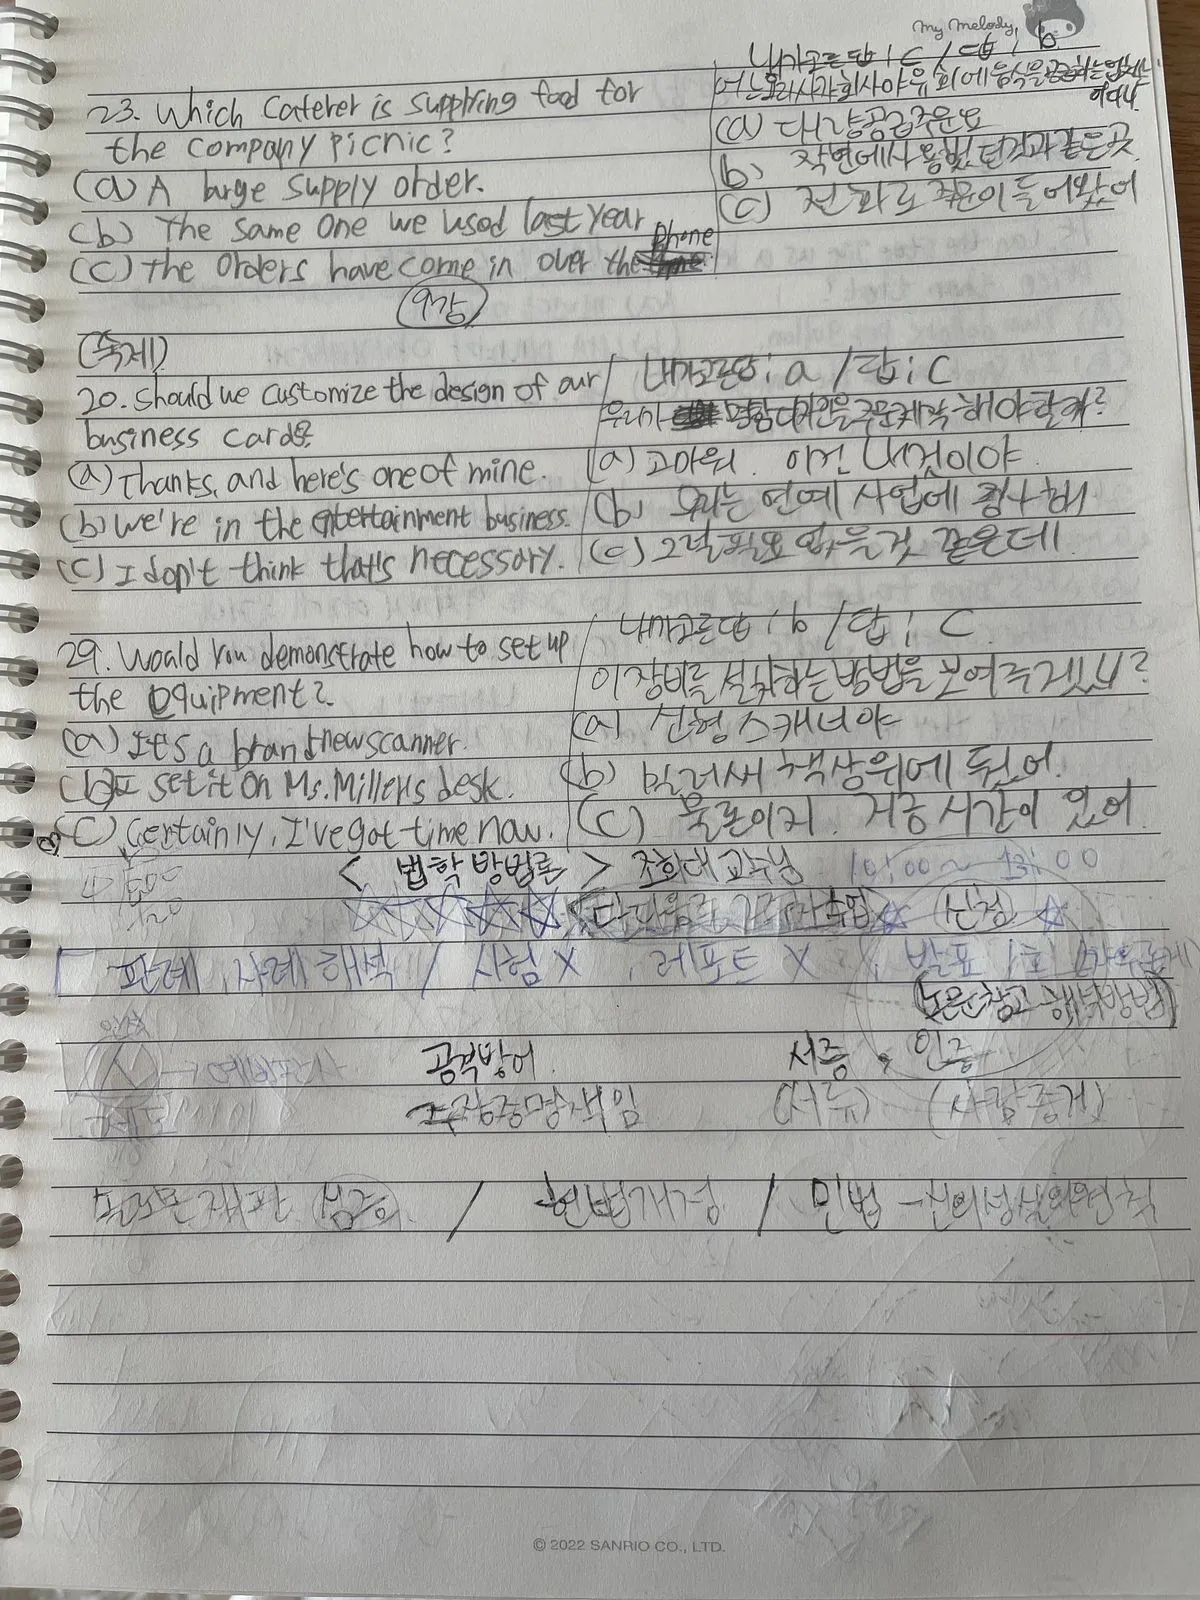 My Melody
내가고른답 ; c / 답 ; b
23. Which Caterer is supplying food for
the company picnic?
(a) A large supply order.
(b) The same one we used last year
(c) the orders have come in over the phone
어느 요리사가 회사야유회에 음식을 공급하는
(a) 대량공급주문요
b) 작년에 사용했던것과 같은곳
(c) 전화로 주문이 들어왔어
9강
(숙제)
20. Should we customize the design of our
business cards?
(a) Thanks, and here's one of mine.
(b) we're in the entertainment business.
(c) I don't think that's necessary.
내가고른답 ; a / 답 ; C
우리가 명함디자인을 주문제작 해야할까?
(a) 고마워. 이건 내것이야
(b) 우리는 연예 사업에 종사해
(c) 그럴 필요 없을것 같은데
29. Would you demonstrate how to set up
the equipment?
(a) It's a brand new scanner.
(b) I set it on Ms. Miller's desk.
(c) Certainly, I've got time now.
내가고른답 ; b / 답 ; C
이 장비를 설치하는 방법을 보여주겠니?
(a) 신형 스캐너야
(b) 밀러씨 책상위에 뒀어.
(c) 물론이지. 지금 시간이 있어
< 법학 방법론 > 조희대 교수님 10:00 ~ 13:00
신청
판례, 사례 해석 / 시험 X , 레포트 X , 발표 1회
논문참고 해석방법
공격방어
서증 , 인증
주장증명책임
(서류) (사람증거)
심증 / 헌법개정 / 민법 - 신의성실의원칙
© 2022 SANRIO CO., LTD.